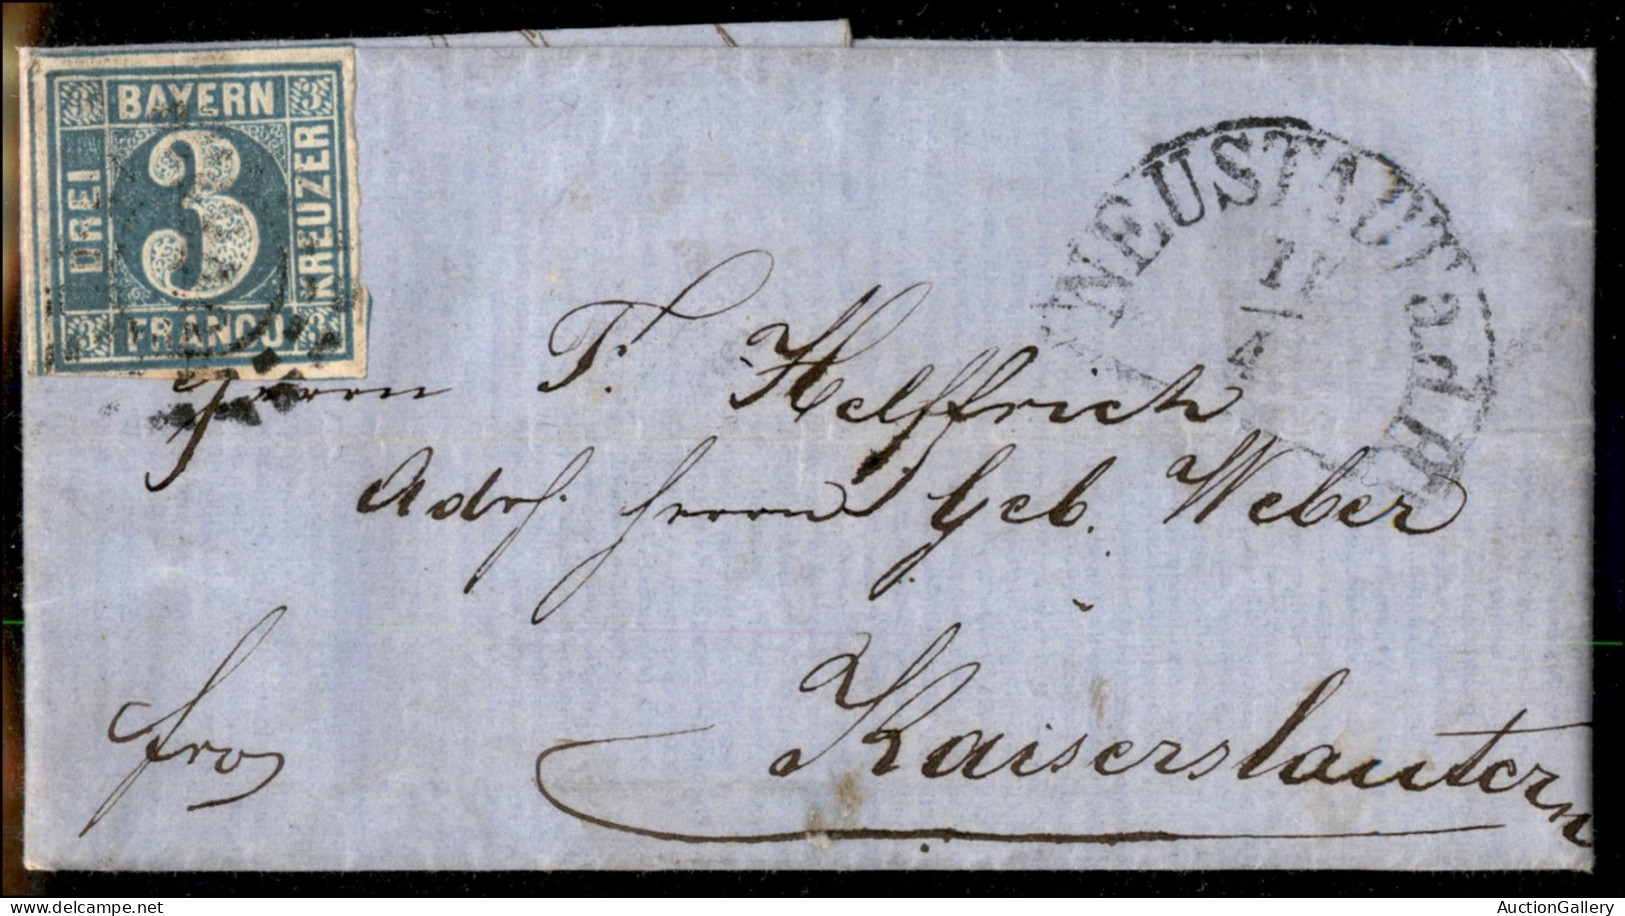 3 BAYERN 3
DREI
3
KREUZER
3 FRANCO 3
NEUSTADT a/d H
11
4
Herrn F. Helffrich
Adrs. Herrn Geb. Weber
fro
Kaiserslautern
AuctionGallery